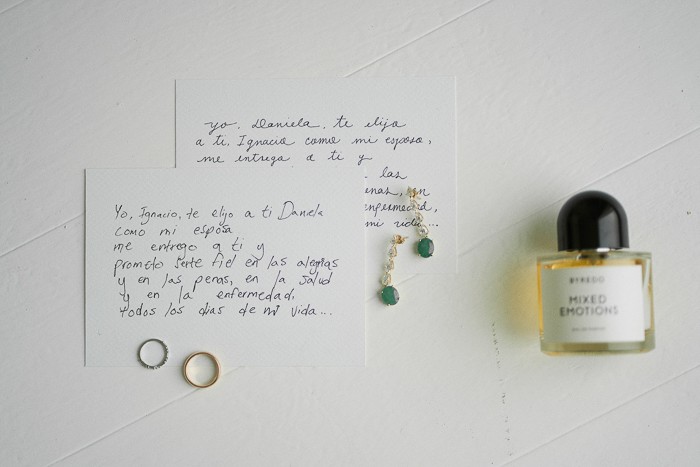 yo, Daniela, te elijo
a ti, Ignacio como mi esposo,
me entrego a ti y
las
enas, en
enfermedad,
mi vida...
Yo, Ignacio, te elijo a ti Daniela
como mi esposa
me entrego a ti y
prometo serte fiel en las alegrias
y en las penas, en la salud
y en la enfermedad,
todos los dias de mi vida...
BYREDO
MIXED
EMOTIONS
EAU DE PARFUM